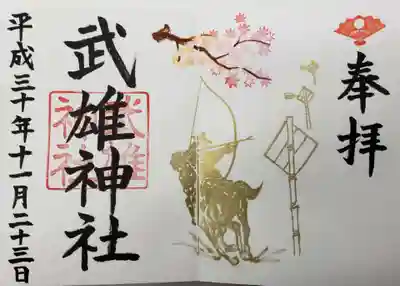 奉拝
武雄神社
武雄神社
平成三十年十一月二十三日